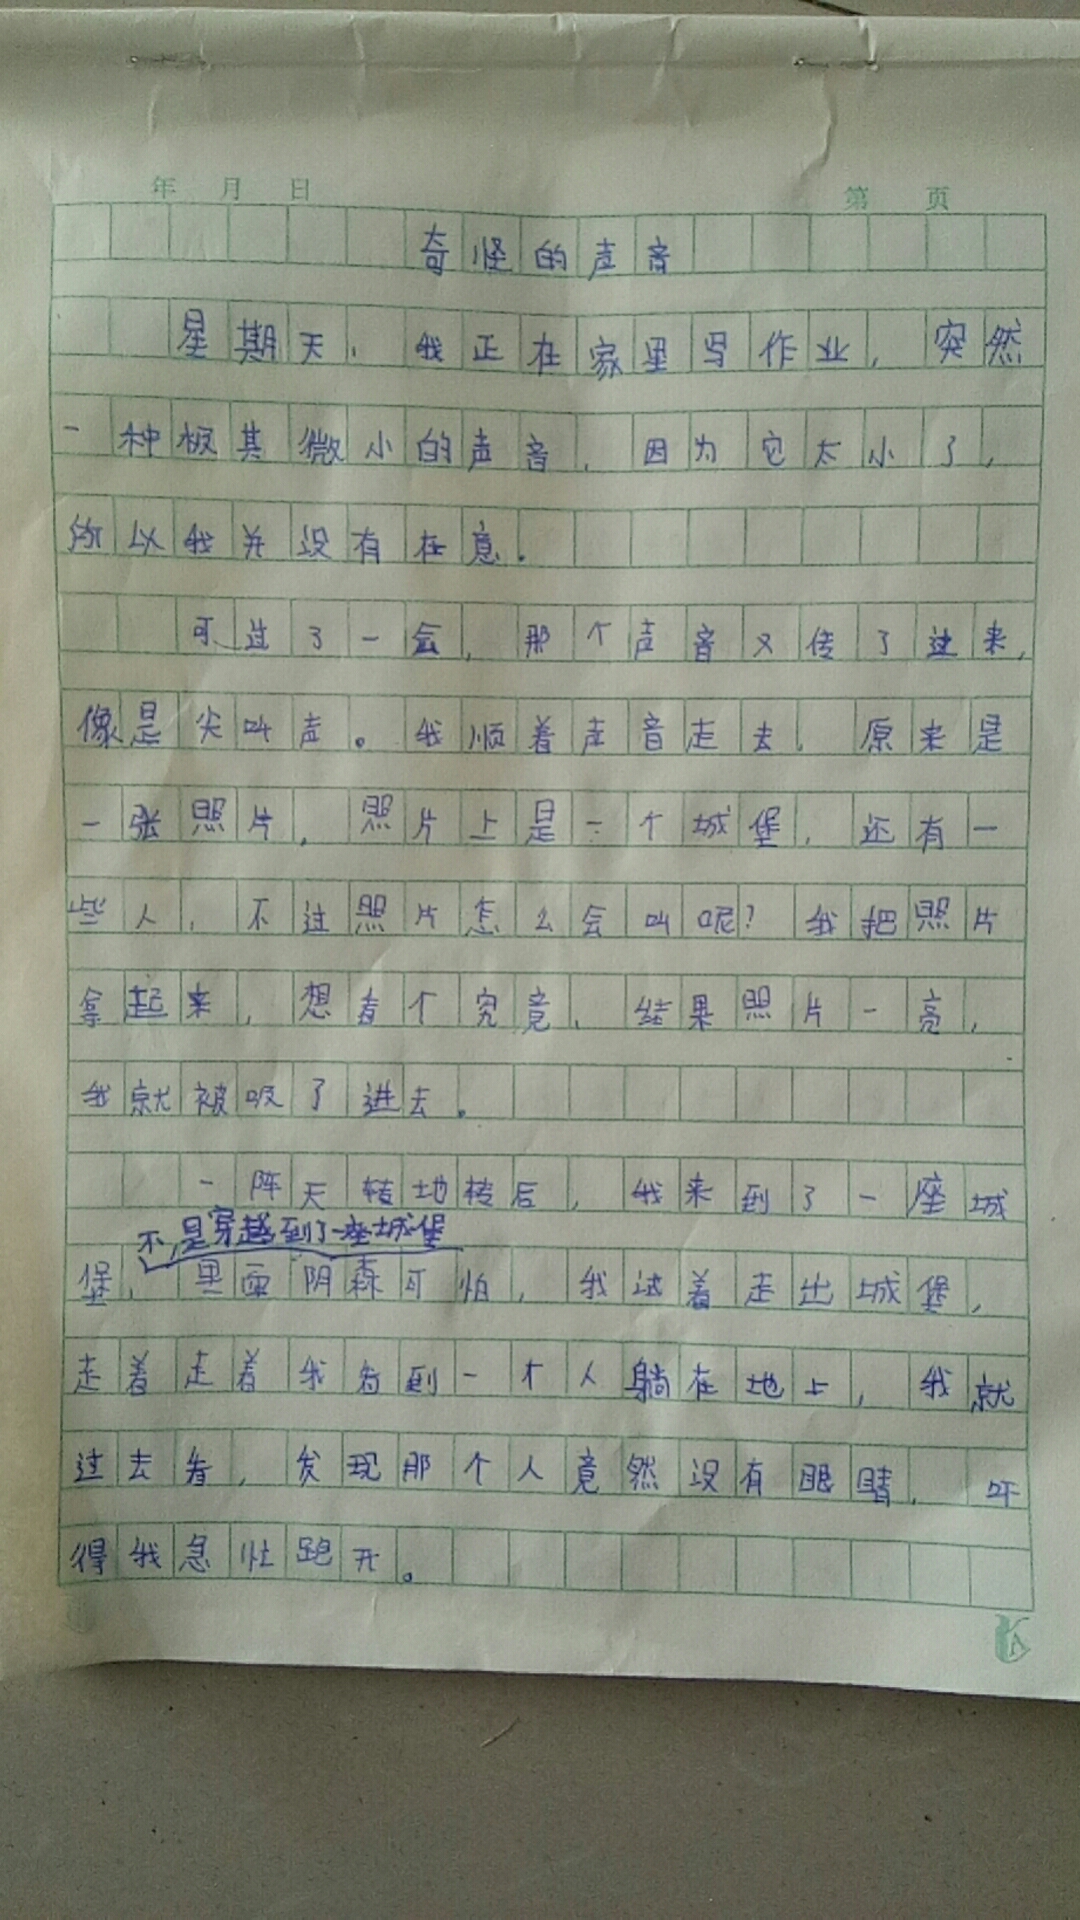 年 月 日
第 页
奇怪的声音
星期天，我正在家里写作业，突然
一种极其微小的声音，因为它太小了，
所以我并没有在意。
可过了一会，那个声音又传了过来，
像是尖叫声。我顺着声音走去，原来是
一张照片，照片上是一个城堡，还有一
些人，不过照片怎么会叫呢？我把照片
拿起来，想看个究竟，结果照片一亮，
我就被吸了进去。
一阵天转地转后，我来到了一座城
不，是穿越到了一座城堡
堡，里面阴森可怕，我试着走出城堡，
走着走着我看到一个人躺在地上，我就
过去看，发现那个人竟然没有眼睛，吓
得我急忙跑开。